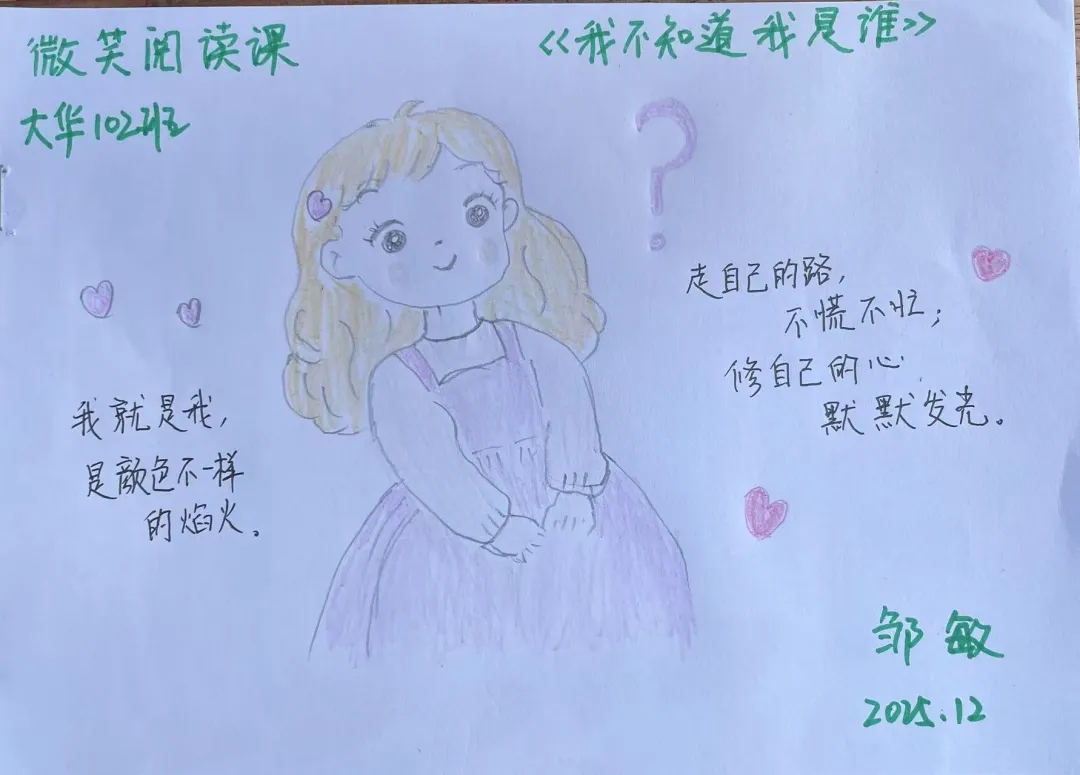 微笑阅读课
《我不知道我是谁》
大华102班
?
走自己的路，
不慌不忙；
修自己的心
默默发光。
我就是我，
是颜色不一样
的焰火。
邹敏
2025.12